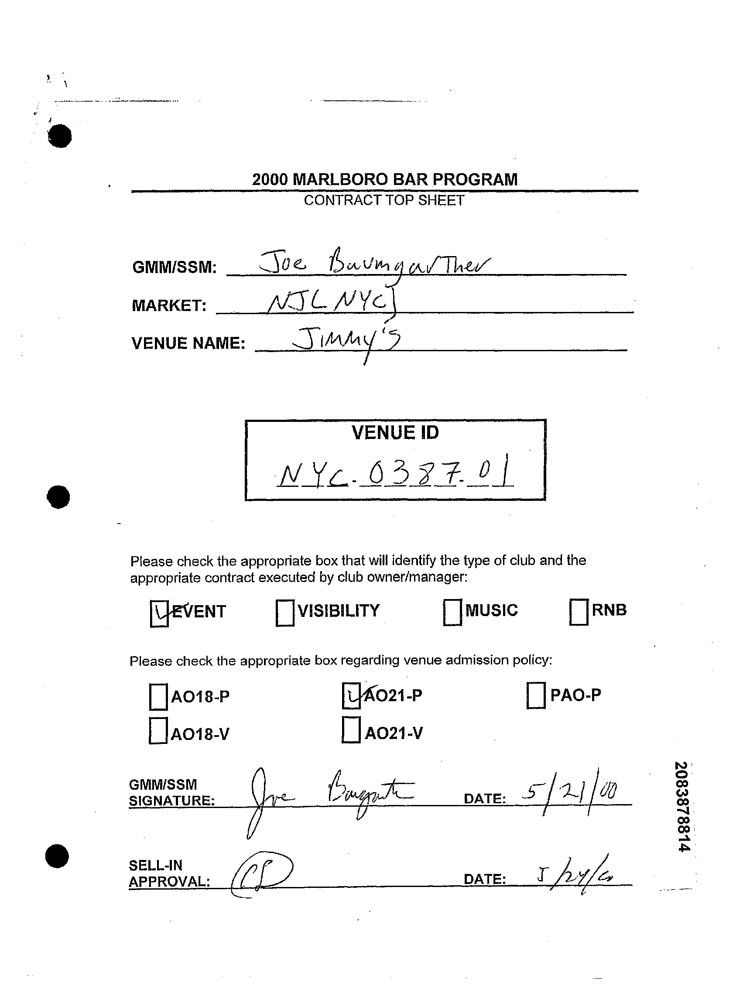 2000 MARLBORO BAR PROGRAM
CONTRACT TOP SHEET
GMM/SSM: Joe BaumgarTner
MARKET: NJ[NYC]
VENUE NAME: Jimmy's
VENUE ID
NYC.0387.01
Please check the appropriate box that will identify the type of club and the
appropriate contract executed by club owner/manager:
EVENT VISIBILITY MUSIC RNB
Please check the appropriate box regarding venue admission policy:
AO18-P AO21-P PAO-P
AO18-V AO21-V
GMM/SSM
SIGNATURE: Joe DATE: 5/21/00
SELL-IN
APPROVAL: DATE:
2083878814